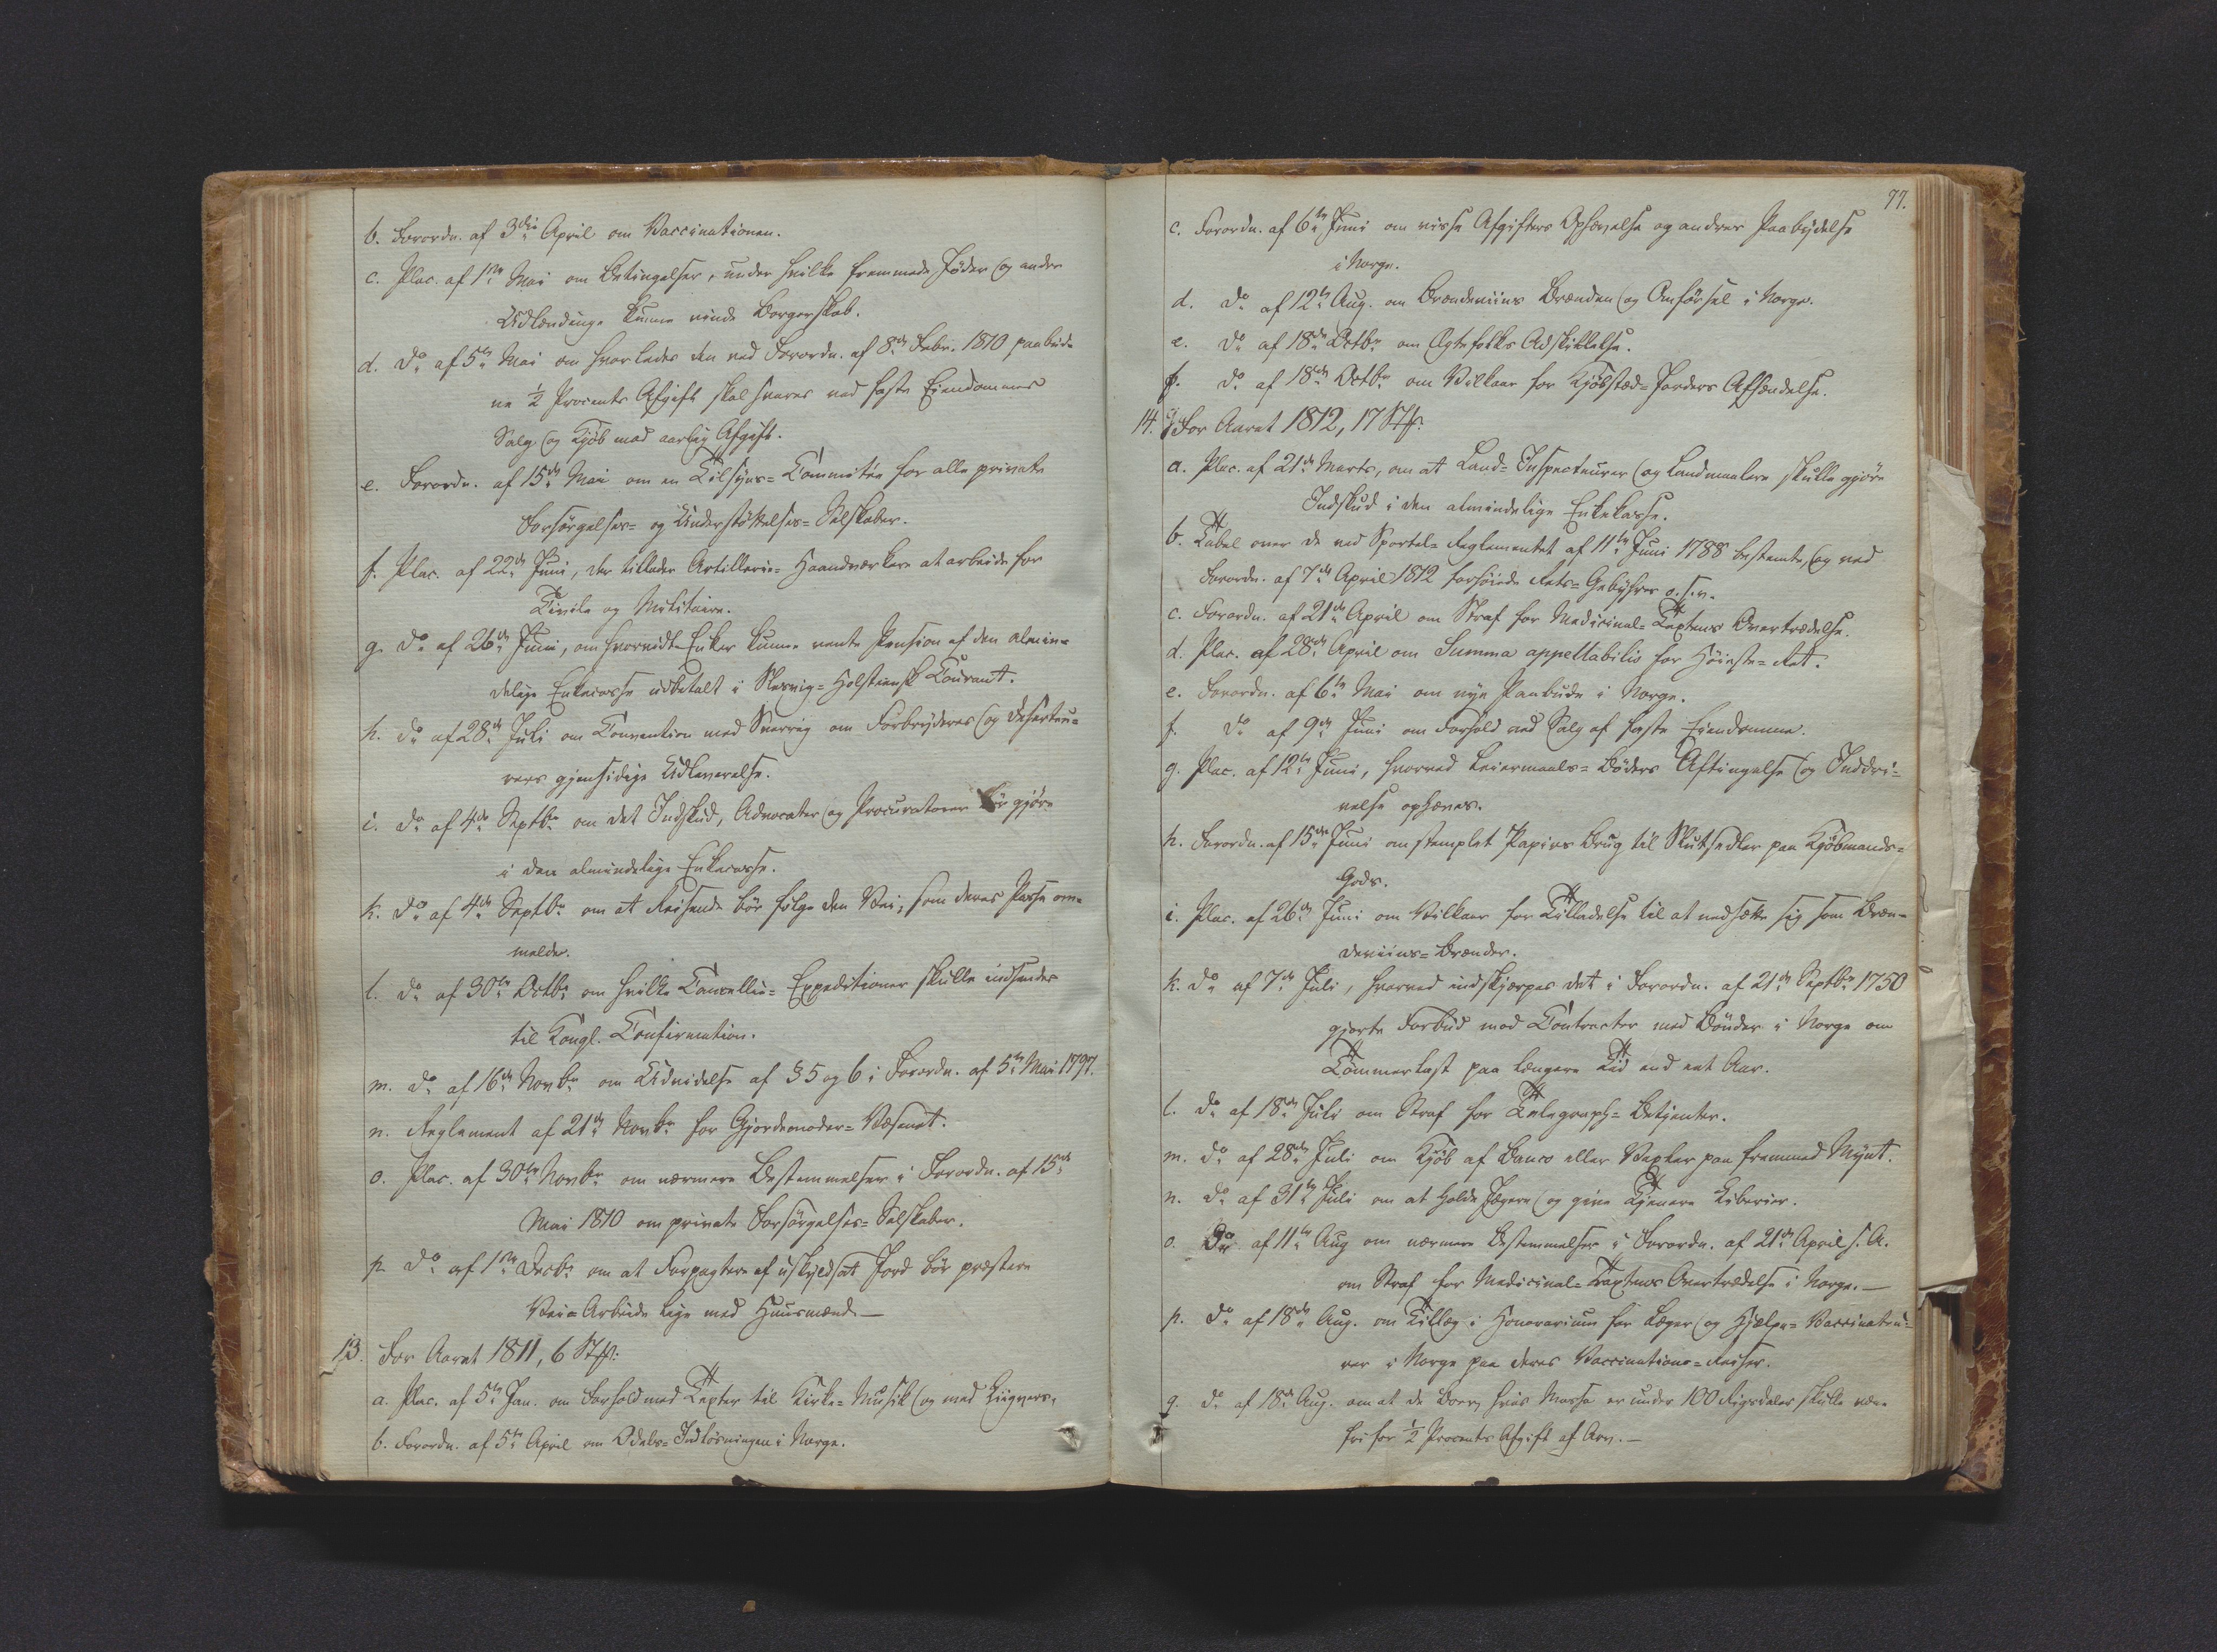 b. Forordn. af 3die April om Vaccinationen.
c. Plac. af 1ste Mai om Betingelser, under hvilke fremmede Jøder og andre
Udlændinge kunne vinde Borgerskab.
d. do af 5te Mai om hvorledes den ved Forordn. af 8de Febr. 1810 paabud-
ne ½ Procents Afgift skal svares ved faste Eiendommes
Salg og Kjøb mod aarlig Afgift.
e. Forordn. af 15de Mai om en Tilsyns-Committée for alle private
Forsørgelses- og Understøttelses-Selskaber.
f. Plac. af 22de Juni, der tillader Artillerie-Haandværkere at arbeide for
Civile og Militaire.
g. do af 26de Juni, om hvorvidt Enker kunne vente Pension af den almin-
delige Enkecasse udbetalt i Slesvig-Holsteensk Courant.
h. do af 28de Juli om Convention med Sverrig om Forbryderes og Deserteu-
rers gjensidige Udleverelse.
i. do af 4de Septbr om det Indskud, Advocater og Procuratorer bør gjøre
i den almindelige Enkecasse.
k. do af 4de Septbr om at Reisende bør følge den Vei, som deres Passe om-
melder.
l. do af 30te Octbr om hvilke Cancellie-Expeditioner skulle indsendes
til Kongl. Confirmation.
m. do af 16de Novbr om Udvidelse af § 5 og 6 i Forordn. af 5te Mai 1797.
n. Reglement af 21de Novbr for Gjordemoder-Væsenet.
o. Plac. af 30te Novbr om nærmere Bestemmelser i Forordn. af 15de
Mai 1810 om private Forsørgelses-Selskaber.
p. do af 1ste Decbr om at Forpagtere af uskyldsat Jord bør præstere
Vei-Arbeide lige med Huusmænd.—
13. For Aaret 1811, 6 Stk:
a. Plac. af 5te Jan. om Forhold med Texter til Kirke-Musik og med Liigvers.
b. Forordn. af 5te April om Odels-Indløsningen i Norge.
77.
c. Forordn. af 6te Juni om visse Afgifters Ophævelse og andres Paabydelse
i Norge.
d. do af 12te Aug. om Brændeviins Brænden og Omførsel i Norge.
e. do af 18de Octbr om Ægtefolks Adskillelse.
f. do af 18de Octbr om Vilkaar for Kjøbstæd-Jorders Afhændelse.
14. For Aaret 1812, 17 Stk.
a. Plac. af 21de Marts, om at Land-Inspecteurer og Landmaalere skulle gjøre
Indskud i den almindelige Enkekasse.
b. Tabel over de ved Sportel-Reglementet af 11te Juni 1788 bestemte, og ved
Forordn. af 7de April 1812 forhøiede Rets-Gebyhrer o.s.v.
c. Forordn. af 21de April om Straf for Medicinal-Taxtens Overtrædelse.
d. Plac. af 28de April om Summa appellabilis for Høieste-Ret.
e. Forordn. af 6te Mai om nye Paabude i Norge.
f. do af 9de Juni om Forhold ved Salg af faste Eiendomme.
g. Plac. af 12te Juni, hvorved Leiermaals-Bøders Aftingelse og Inddri-
velse ophæves.
h. Forordn. af 15de Juni om stemplet Papirs Brug til Slutsedler paa Kjøbmands-
Gods.
i. Plac. af 26de Juni om Vilkaar for Tilladelse til at nedsætte sig som Bræn-
deviins-Brænder.
k. do af 7de Juli, hvorved indskjærpes det i Forordn. af 21de Septbr 1750
gjorte Forbud mod Contracter med Bønder i Norge om
Tømmerlast paa længere Tid end eet Aar.
l. do af 18de Juli om Straf for Telegraph-Betjenter.
m. do af 28de Juli om Kjøb af Banco eller Vexler paa fremmed Mynt.
n. do af 31te Juli om at holde Jægere og give Tjenere Liberier.
o. do af 11te Aug om nærmere Bestemmelser i Forordn. af 21de April s. A.
om Straf for Medicinal-Taxtens Overtrædelse i Norge.—
p. do af 18de Aug. om Tillæg i Honorarium for Læger og Hjelpe-Vaccinateu-
rer i Norge paa deres Vaccinations-Reiser.
q. do af 18de Aug. om at de Boer, hvis Masse er under 100 Rigsdaler skulle være
fri for ½ Procents Afgift af Arv.—